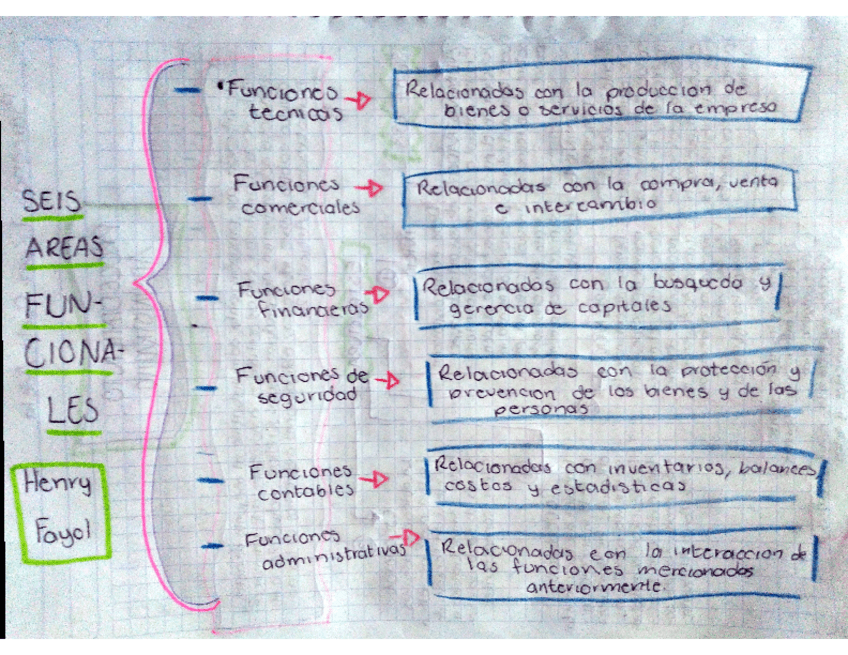 SEIS
AREAS
FUN-
CIONA-
LES
Henry
Fayol
Funciones
tecnicas
Relacionadas con la produccion de
bienes o servicios de la empresa
Funciones
comerciales
Relacionadas con la compra, venta
e intercambio
Funciones
financieras
Relacionadas con la busqueda y
gerencia de capitales
Funciones de
seguridad
Relacionadas con la protección y
prevencion de los bienes y de las
personas
Funciones
contables
Relacionadas con inventarios, balances
costos y estadisticas
Funciones
administrativas
Relacionadas con la interaccion de
las funciones mercionadas
anteriormente.